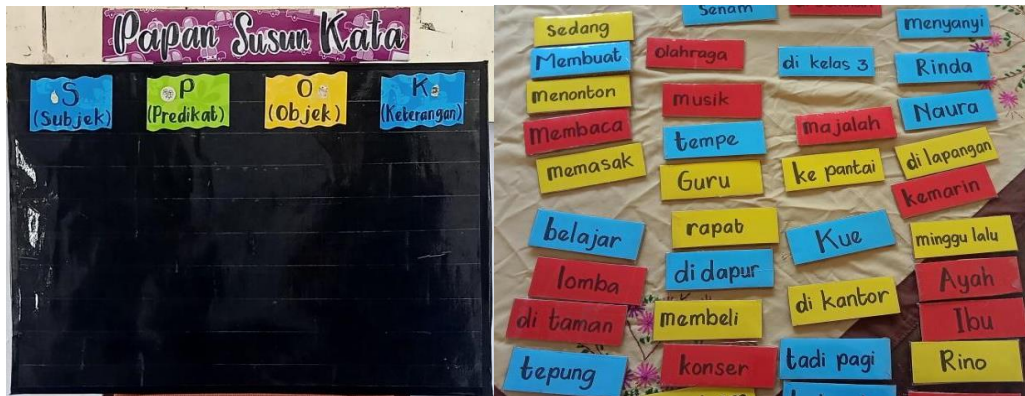 Papan Susun Kata
S
(Subjek)
P
(Predikat)
O
(Objek)
K
(Keterangan)
sedang
Membuat
Menonton
Membaca
memasak
belajar
lomba
di taman
tepung
olahraga
musik
tempe
Guru
rapat
di dapur
membeli
konser
Senam
di kelas 3
majalah
ke pantai
Kue
di kantor
tadi pagi
menyanyi
Rinda
Naura
di lapangan
kemarin
minggu lalu
Ayah
Ibu
Rino